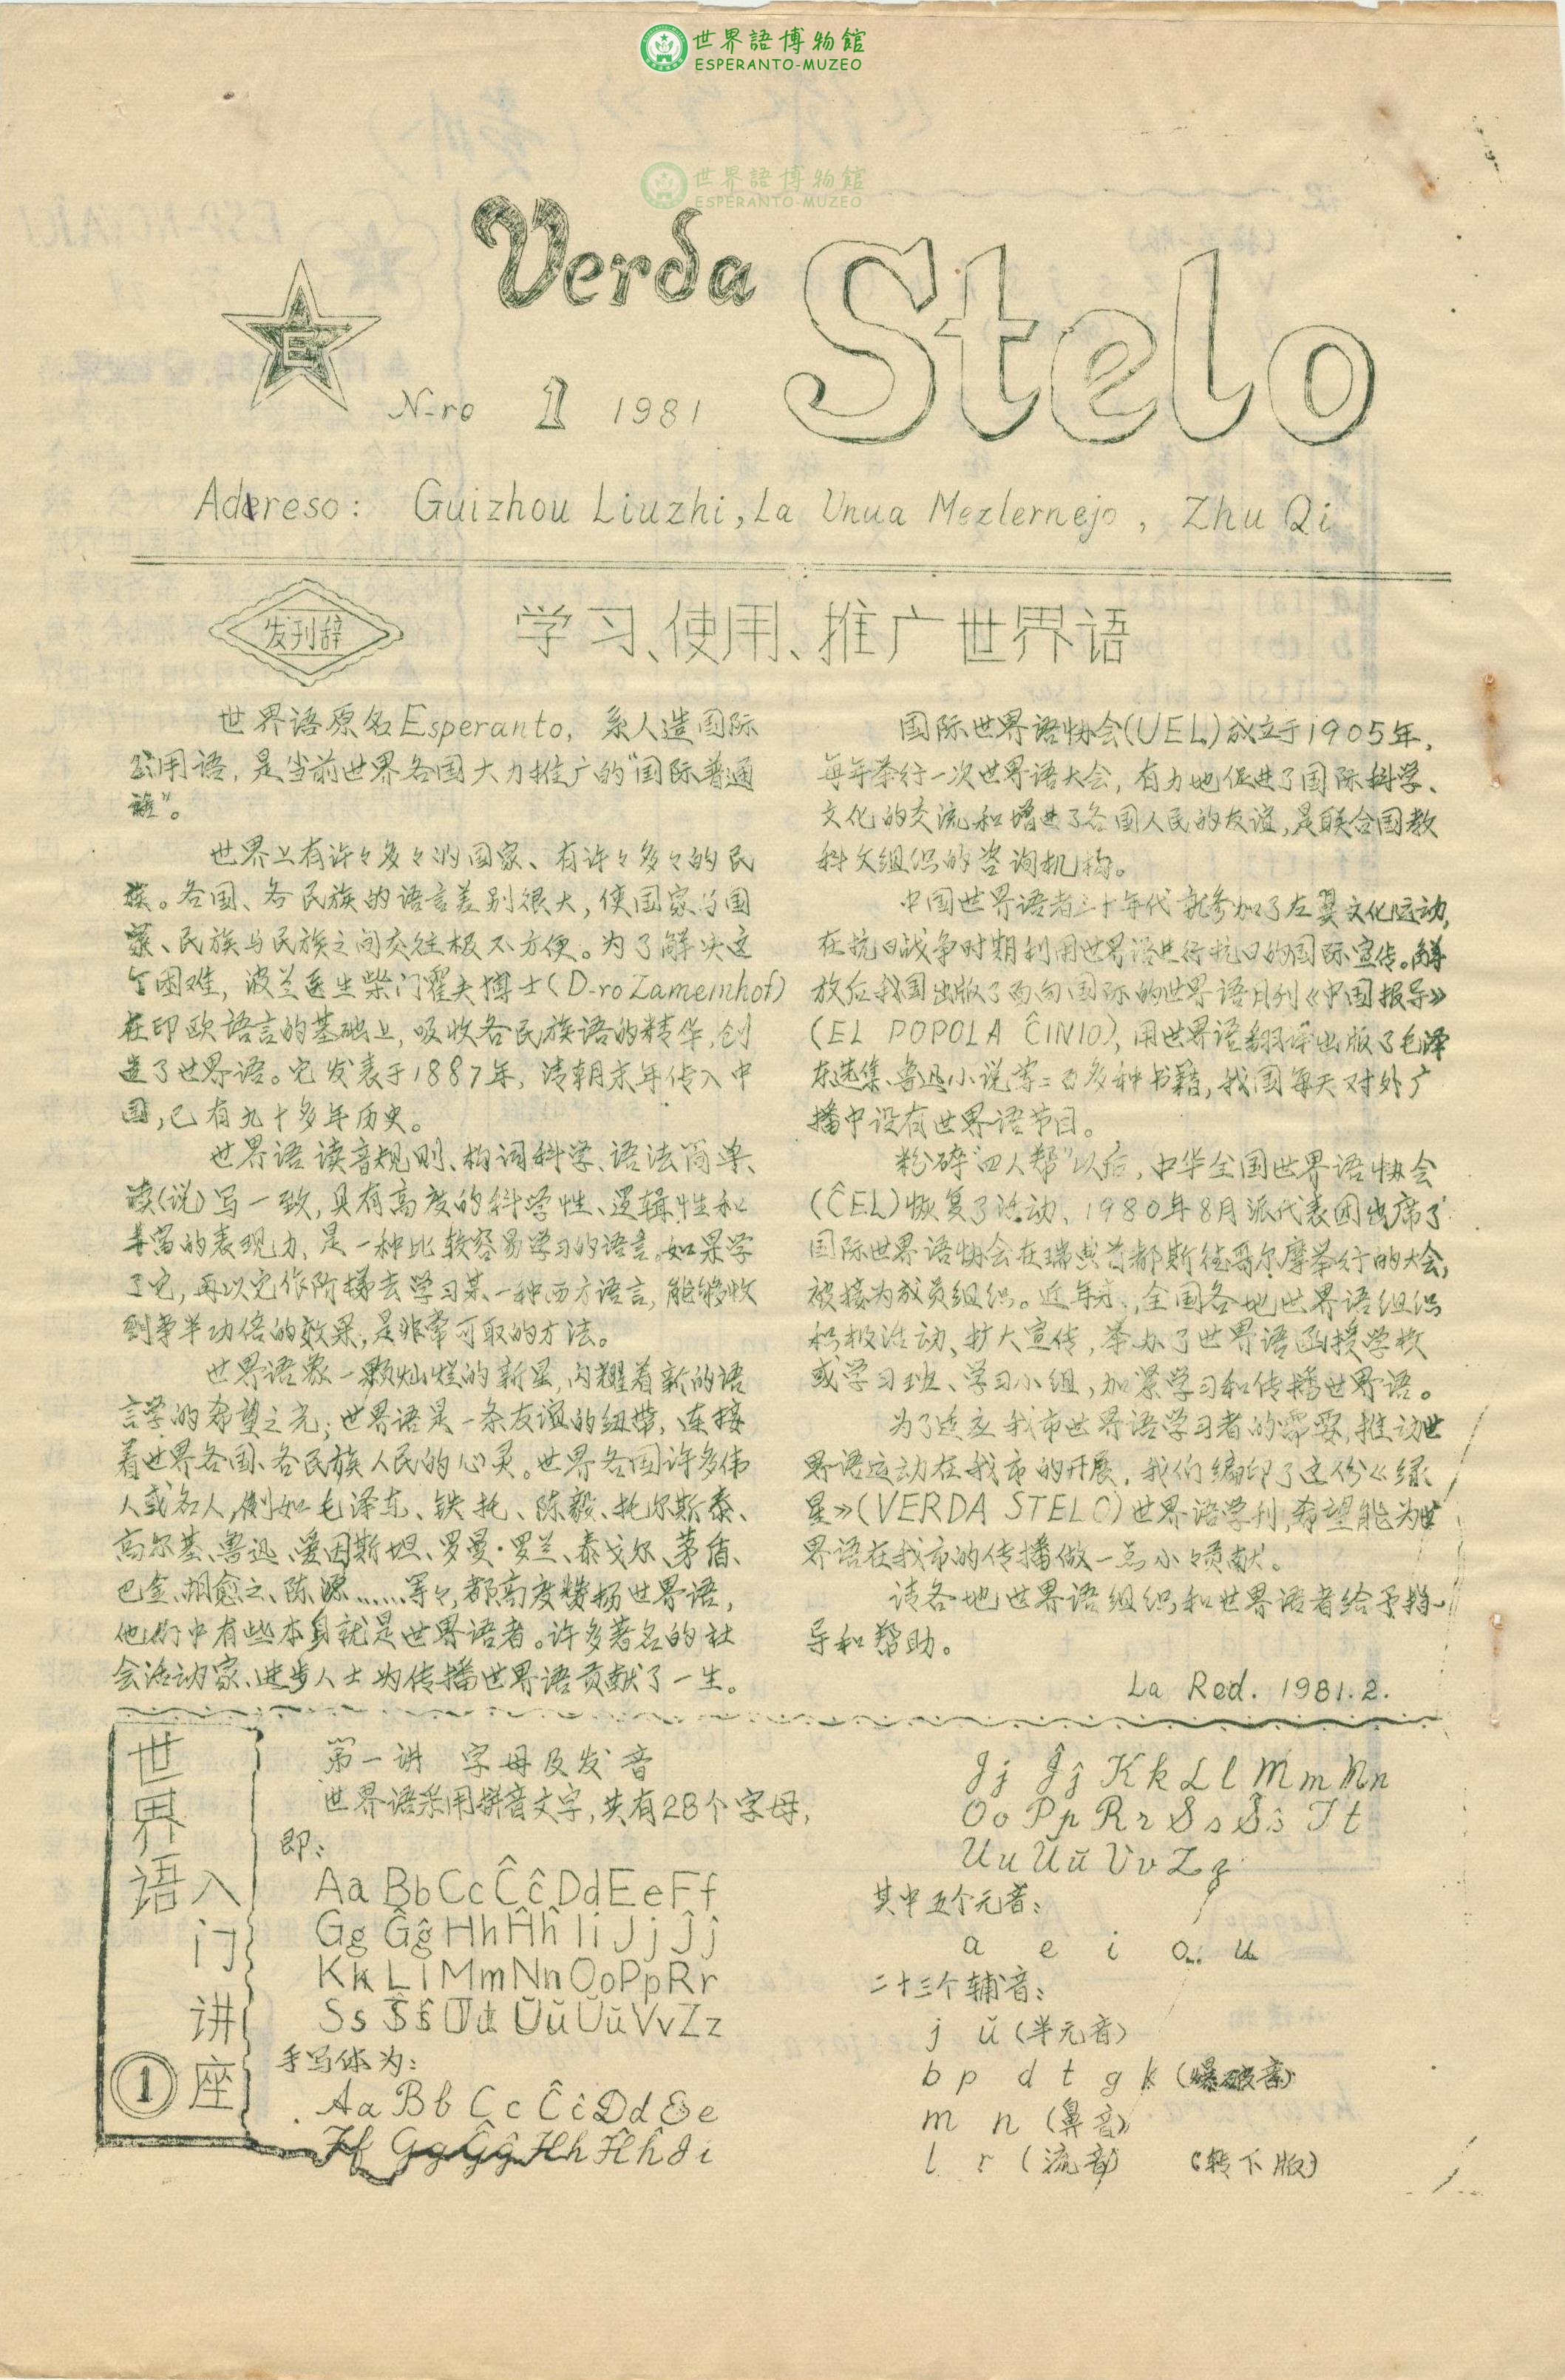 世界語博物館
ESPERANTO-MUZEO
世界語博物館
ESPERANTO-MUZEO
Verda Stelo
E
N-ro 1 1981
Adereso: Guizhou Liuzhi, La Unua Mezlernejo, Zhu Qi
发刊辞
学习、使用、推广世界语
世界语原名Esperanto, 系人造国际
公用语, 是当前世界各国大力推广的“国际普通
语”。
世界上有许々多々的国家、有许々多々的民
族。各国、各民族的语言差别很大, 使国家与国
家、民族与民族之间交往极不方便。为了解决这
个困难, 波兰医生柴门霍夫博士(D-ro Zamemhof)
在印欧语言的基础上, 吸收各民族语的精华, 创
造了世界语。它发表于1887年, 清朝末年传入中
国, 已有九十多年历史。
世界语读音规则、构词科学、语法简单、
读(说)写一致, 具有高度的科学性、逻辑性和
丰富的表现力, 是一种比较容易学习的语言。如果学
了它, 再以它作阶梯去学习某一种西方语言, 能够收
到事半功倍的效果, 是非常可取的方法。
世界语象一颗灿烂的新星, 闪耀着新的语
言学的希望之光; 世界语是一条友谊的纽带, 连接
着世界各国、各民族人民的心灵。世界各国许多伟
人或名人, 例如毛泽东、铁托、陈毅、托尔斯泰、
高尔基、鲁迅、爱因斯坦、罗曼·罗兰、泰戈尔、茅盾、
巴金、胡愈之、陈源……等々, 都高度赞扬世界语,
他们中有些本身就是世界语者。许多著名的社
会活动家、进步人士为传播世界语贡献了一生。
国际世界语协会(UEL)成立于1905年,
每年举行一次世界语大会, 有力地促进了国际科学、
文化的交流和增进了各国人民的友谊, 是联合国教
科文组织的咨询机构。
中国世界语者三十年代就参加了左翼文化运动,
在抗日战争时期利用世界语进行抗日的国际宣传。解
放后我国出版了面向国际的世界语月刊《中国报导》
(EL POPOLA ĈINIO), 用世界语翻译出版了毛泽
东选集、鲁迅小说等二百多种书籍, 我国每天对外广
播中设有世界语节目。
粉碎“四人帮”以后, 中华全国世界语协会
(ĈEL)恢复了活动、1980年8月派代表团出席了
国际世界语协会在瑞典首都斯德哥尔摩举行的大会,
被接为成员组织。近年来, 全国各地世界语组织
积极活动、扩大宣传, 举办了世界语函授学校
或学习班、学习小组, 加深学习和传播世界语。
为了适应我市世界语学习者的需要, 推动世
界语运动在我市的开展, 我们编印了这份《绿
星》(VERDA STELO)世界语学刊, 希望能为世
界语在我市的传播做一点小々贡献。
请各地世界语组织和世界语者给予指
导和帮助。
La Red. 1981.2.
世界语入门讲座
①
第一讲 字母及发音
世界语采用拼音文字, 共有28个字母,
即:
Aa Bb Cc Ĉĉ Dd Ee Ff
Gg Ĝĝ Hh Ĥĥ Ii Jj Ĵĵ
Kk Ll Mm Nn Oo Pp Rr
Ss Ŝŝ Tt Uu Ŭŭ Vv Zz
手写体为:
Aa Bb Cc Ĉĉ Dd Ee
Ff Gg Ĝĝ Hh Ĥĥ Ii
Jj Ĵĵ Kk Ll Mm Nn
Oo Pp Rr Ss Ŝŝ Tt
Uu Ŭŭ Vv Zz
其中五个元音:
a e i o u
二十三个辅音:
j ŭ (半元音)
b p d t g k (爆破音)
m n (鼻音)
l r (流音) (转下版)